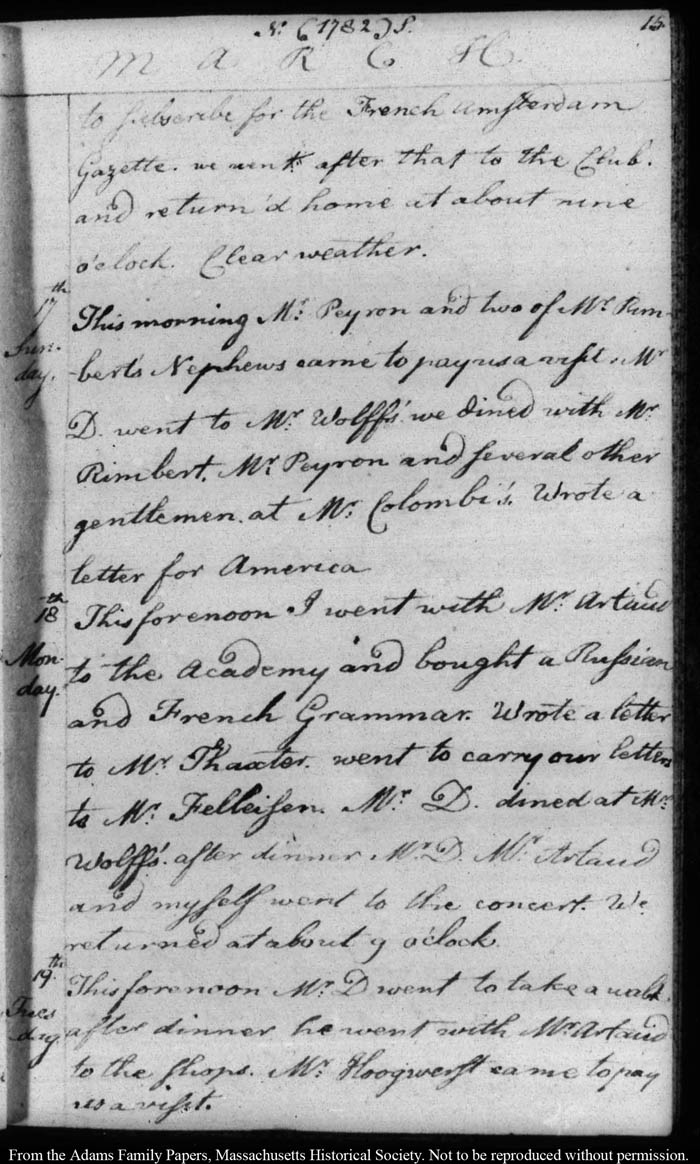 N. S. (1782) S. 15.
M A R C H.
to subscribe for the French Amsterdam
Gazette. we went after that to the Club.
and return'd home at about nine
o'clock. Clear weather.
17th
Sun-
day.
This morning Mr. Peyron and two of Mr. Rim-
-bert's Nephews came to pay us a visit. Mr
D. went to Mr. Wolff's. we dined with Mr.
Rimbert, Mr. Peyron and several other
gentlemen. at Mr. Colombi's. Wrote a
letter for America
18th
Mon-
day.
This forenoon I went with Mr. Artaud
to the Academy and bought a Russian
and French Grammar. Wrote a letter
to Mr. Thaxter. went to carry our letters
to Mr. Felleisen. Mr. D. dined at Mr.
Wolff's. after dinner Mr D. Mr. Artaud
and myself went to the concert. We
returned at about 9 o'clock.
19th
Tues
day
This forenoon Mr. D went to take a walk.
after dinner he went with Mr. Artaud
to the shops. Mr. Hoogwerft came to pay
us a visit.
From the Adams Family Papers, Massachusetts Historical Society. Not to be reproduced without permission.